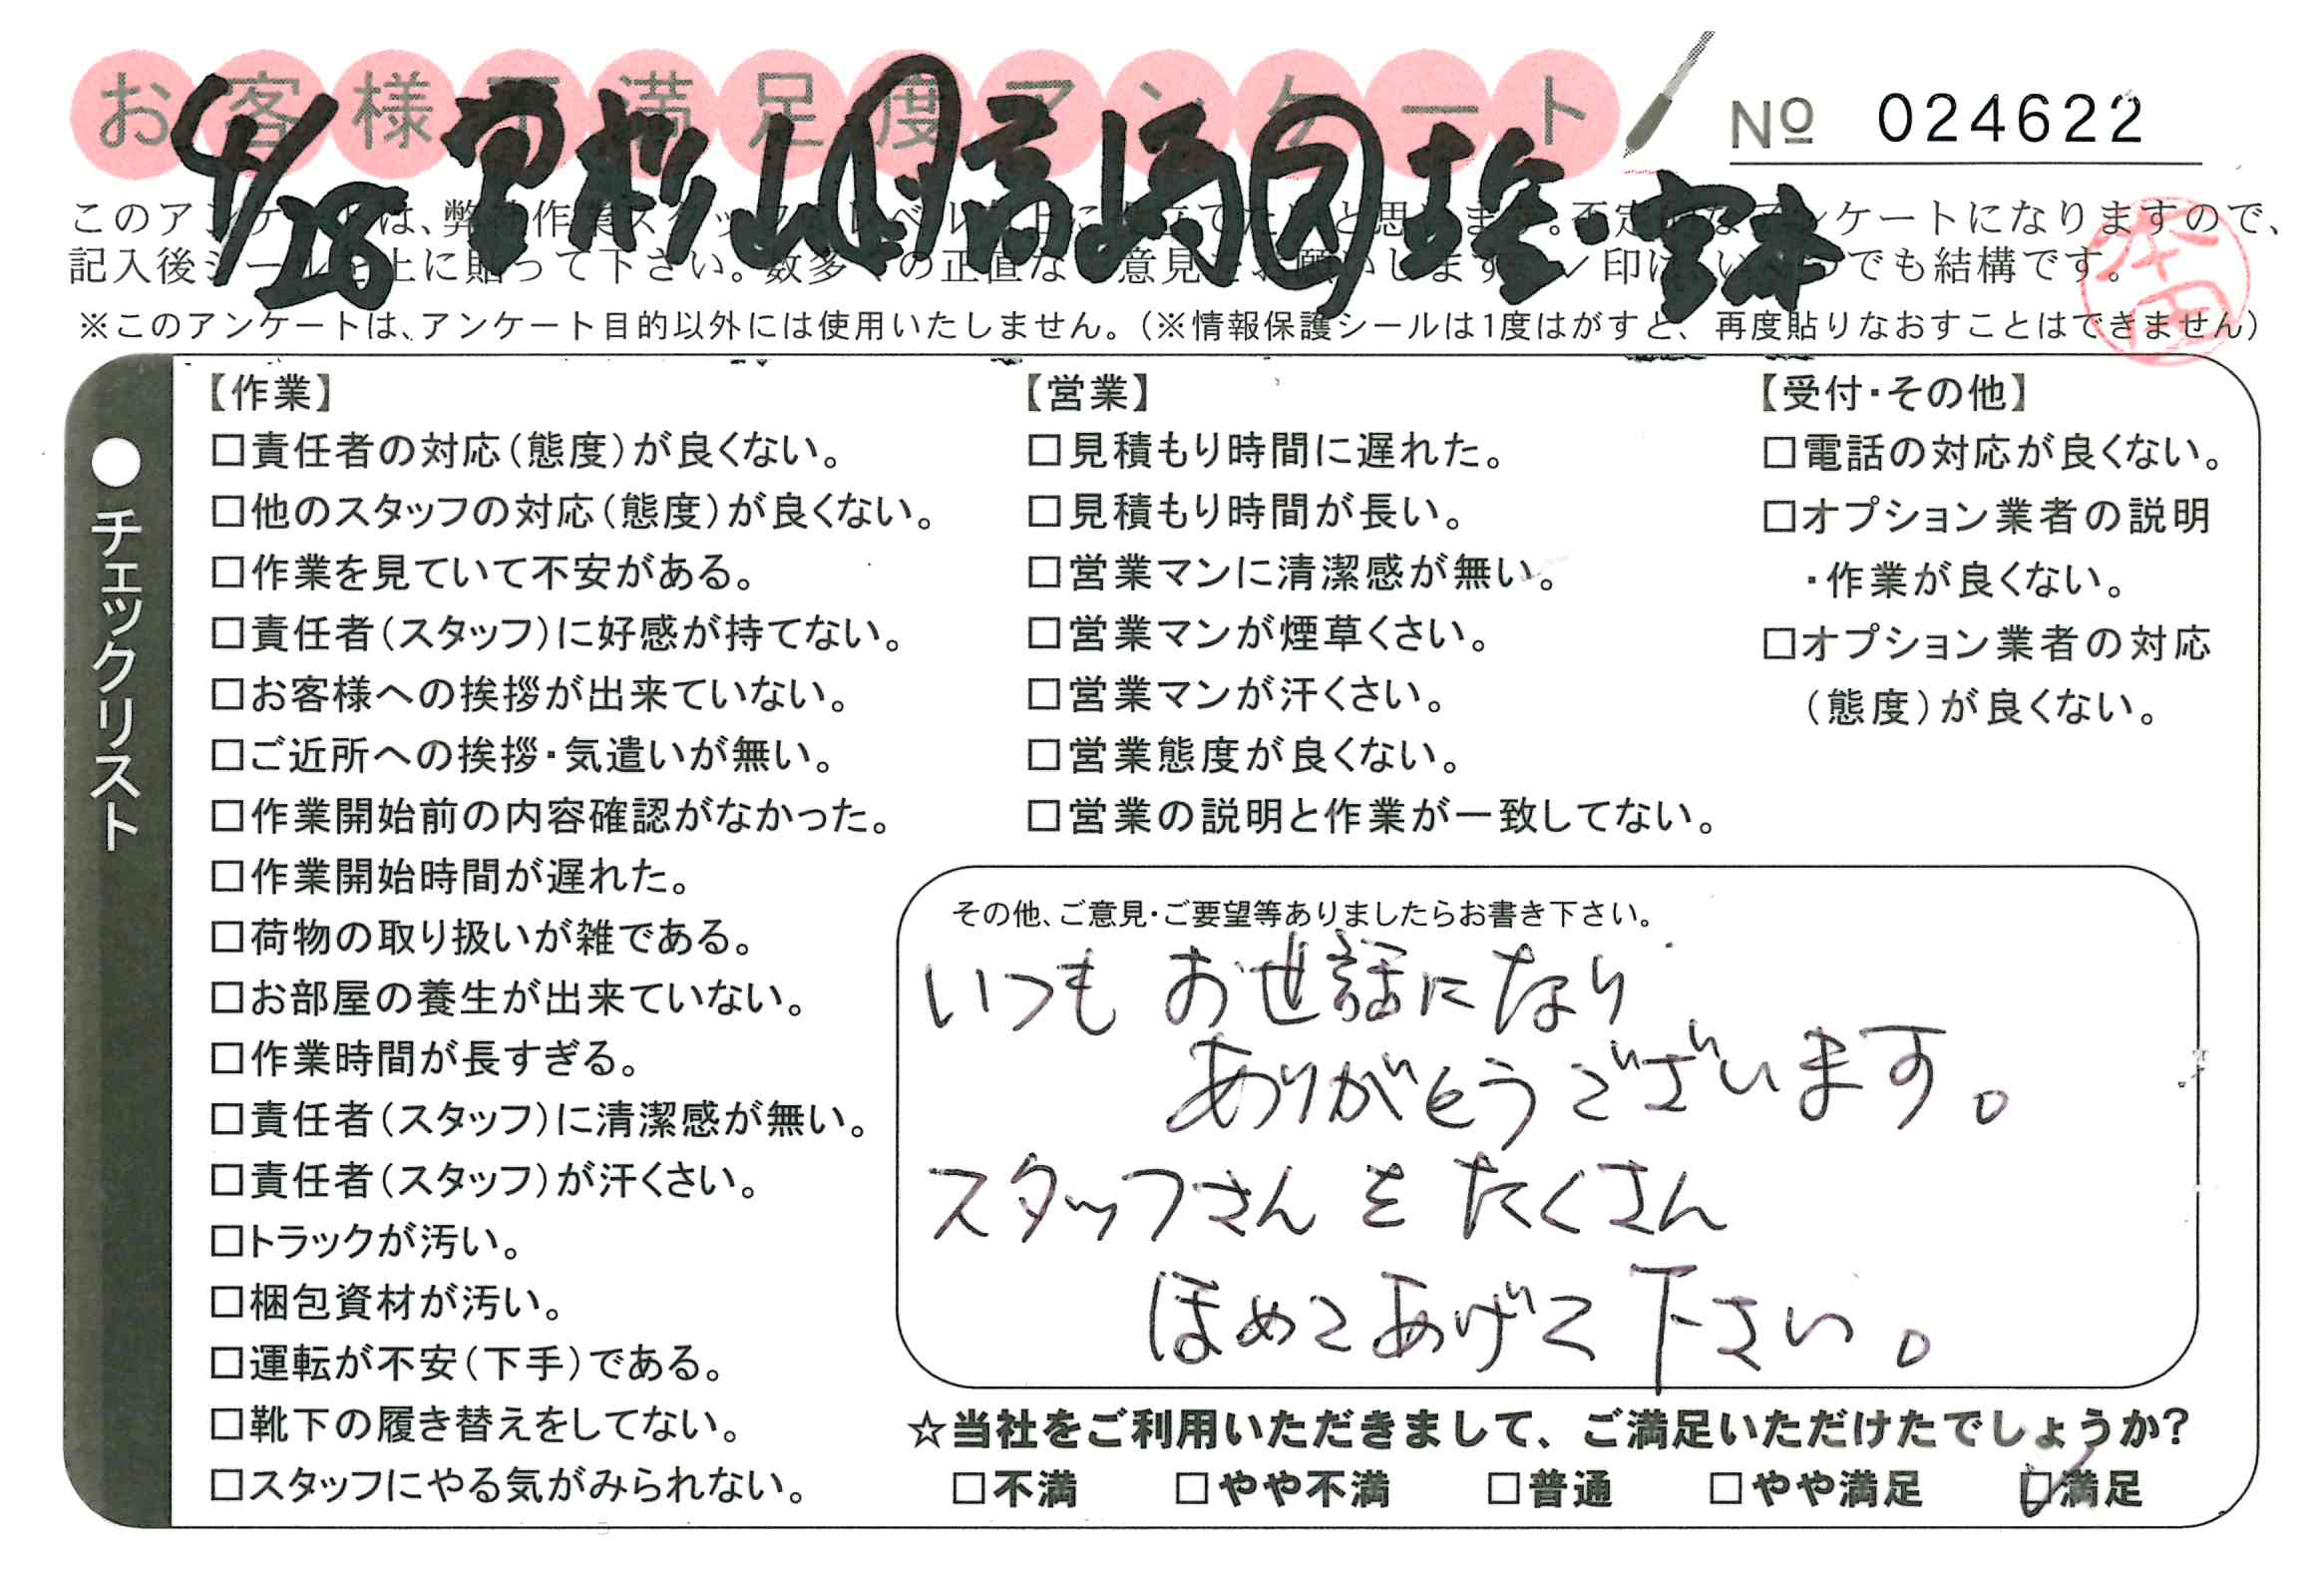 お客様不満足度アンケート
№ 024622
4/28
記入後シールを上に貼って下さい。
※このアンケートは、アンケート目的以外には使用いたしません。(※情報保護シールは1度はがすと、再度貼りなおすことはできません)
●チェックリスト
【作業】
□責任者の対応(態度)が良くない。
□他のスタッフの対応(態度)が良くない。
□作業を見ていて不安がある。
□責任者(スタッフ)に好感が持てない。
□お客様への挨拶が出来ていない。
□ご近所への挨拶・気遣いが無い。
□作業開始前の内容確認がなかった。
□作業開始時間が遅れた。
□荷物の取り扱いが雑である。
□お部屋の養生が出来ていない。
□作業時間が長すぎる。
□責任者(スタッフ)に清潔感が無い。
□責任者(スタッフ)が汗くさい。
□トラックが汚い。
□梱包資材が汚い。
□運転が不安(下手)である。
□靴下の履き替えをしてない。
□スタッフにやる気がみられない。
【営業】
□見積もり時間に遅れた。
□見積もり時間が長い。
□営業マンに清潔感が無い。
□営業マンが煙草くさい。
□営業マンが汗くさい。
□営業態度が良くない。
□営業の説明と作業が一致してない。
【受付・その他】
□電話の対応が良くない。
□オプション業者の説明
・作業が良くない。
□オプション業者の対応
(態度)が良くない。
その他、ご意見・ご要望等ありましたらお書き下さい。
いつもお世話になり
ありがとうございます。
スタッフさんをたくさん
ほめてあげて下さい。
☆当社をご利用いただきまして、ご満足いただけたでしょうか?
□不満 □やや不満 □普通 □やや満足 ☑満足